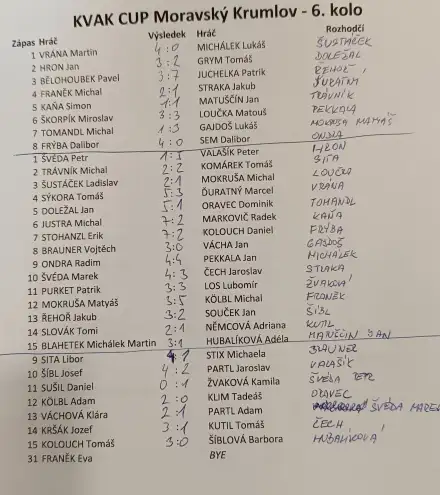 KVAK CUP Moravský Krumlov - 6. kolo
Zápas Hráč Výsledek Hráč Rozhodčí
1 VRÁNA Martin 4:0 MICHÁLEK Lukáš ŠUSTÁČEK
2 HRON Jan 3:2 GRYM Tomáš DOLEŽAL
3 BĚLOHOUBEK Pavel 3:7 JUCHELKA Patrik ŘEHOŘ
4 FRANĚK Michal 2:1 STRAKA Jakub ĎURATNÝ
5 KAŇA Simon 1:1 MATUŠČÍN Jan TRÁVNÍK
6 ŠKORPÍK Miroslav 3:3 LOUČKA Matouš PEKKALA
7 TOMANDL Michal 1:3 GAJDOŠ Lukáš MOKRUŠA MATYÁŠ
8 FRÝBA Dalibor 4:0 SEM Dalibor ONDRA
1 ŠVÉDA Petr 1:5 VALAŠÍK Peter HRON
2 TRÁVNÍK Michal 2:2 KOMÁREK Tomáš SITA
3 ŠUSTÁČEK Ladislav 2:1 MOKRUŠA Michal LOUČKA
4 SÝKORA Tomáš 5:3 ĎURATNÝ Marcel VRÁNA
5 DOLEŽAL Jan 5:1 ORAVEC Dominik TOMANDL
6 JUSTRA Michal 7:2 MARKOVIČ Radek KAŇA
7 STOHANZL Erik 7:2 KOLOUCH Daniel FRÝBA
8 BRAUNER Vojtěch 3:0 VÁCHA Jan GAJDOŠ
9 ONDRA Radim 4:4 PEKKALA Jan MICHÁLEK
10 ŠVÉDA Marek 4:3 ČECH Jaroslav STRAKA
11 PURKET Patrik 3:3 LOS Lubomír ŽVAKOVÁ
12 MOKRUŠA Matyáš 3:5 KÖLBL Michal FRANĚK
13 ŘEHOŘ Jakub 3:2 SOUČEK Jan ŠÍBL
14 SLOVÁK Tomi 2:1 NĚMCOVÁ Adriana KUTIL
15 BLAHETEK Michálek Martin 3:1 HUBALÍKOVÁ Adéla MATUŠČÍN JAN
9 SITA Libor 4:1 STIX Michaela BRAUNER
10 ŠÍBL Josef 4:2 PARTL Jaroslav VALAŠÍK
11 SUŠIL Daniel 0:1 ŽVAKOVÁ Kamila ŠVÉDA PETR
12 KÖLBL Adam 2:0 KLIM Tadeáš ORAVEC
13 VÁCHOVÁ Klára 2:1 PARTL Adam ŠVÉDA MAREK
14 KRŠÁK Jozef 3:1 KUTIL Tomáš ČECH
15 KOLOUCH Tomáš 3:0 ŠÍBLOVÁ Barbora HUBALÍKOVÁ
31 FRANĚK Eva BYE